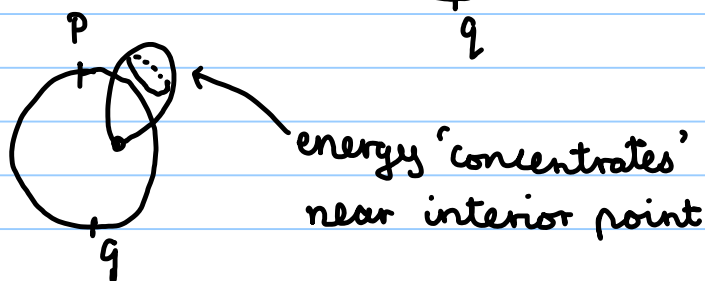 q
p
energy 'concentrates'
near interior point
q